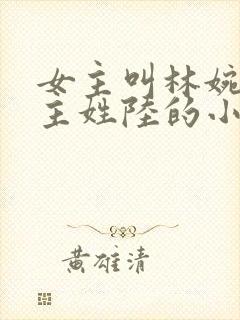 女主叫林婉
主姓陸的小
黃雄清